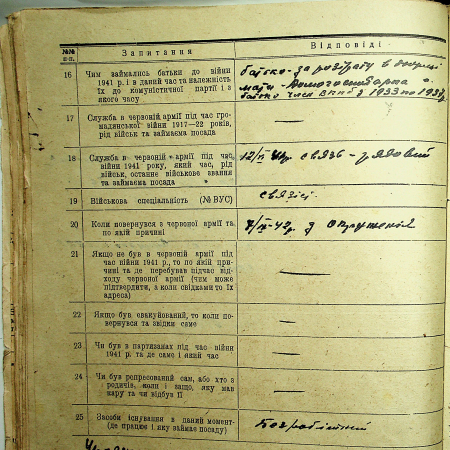 №№ п.п.
Запитання
Відповіді
16 Чим займались батьки до війни
1941 р. і в даний час та належність
їх до комуністичної партії і з
якого часу
батько - за
мати - домогосподарка
батько член ВКПб з 1933 по 193
17 Служба в червоній армії під час гро-
мадянської війни 1917—22 років,
рід військ та займаєма посада
—
18 Служба в червоній армії під час
війни 1941 року, який час, рід
військ, останнє військове звання
та займаєма посада
связь - рядовий
19 Військова спеціальність (№ ВУС)
связіст
20 Коли повернувся з червоної армії та
по якій причині
з
21 Якщо не був в червоній армії під
час війни 1941 р., то по якій при-
чині та де перебував підчас від-
ходу червоної армії (чим може
підтвердити, а коли свідками то їх
адреса)
—
22 Якщо був евакуйований, то коли по-
вернувся та звідки саме
—
23 Чи був в партизанах під час війни
1941 р. та де саме і який час
—
24 Чи був репресований сам, або хто з
родичів, коли і защо, яку мав
кару та чи відбув її
—
25 Засоби існування в даний момент
(де працює і яку займає посаду)
Безробітний